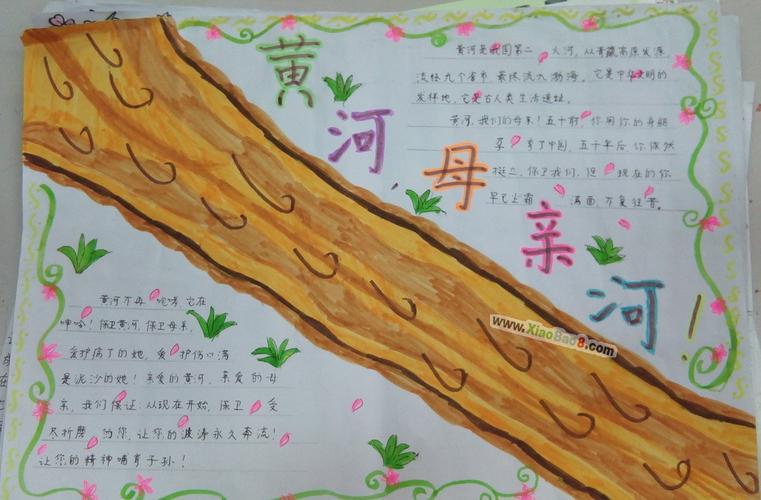 黄河母亲河!
黄河是我国第二大河,从青藏高原发源
流经九个省市最终流入渤海。它是中华文明的
发祥地,它是古人类生活遗址。
黄河,我们的母亲!五千前,你用你的身躯
孕育了中国,五千年后你依然
挺立,保卫我们,但现在的你
早已上霜满面,不复往昔。
www.XiaoBao8.com
黄河不再咆哮,它在
呻吟!保卫黄河,保卫母亲,
爱护病了的她,爱护伤口满
是泥沙的她!亲爱的黄河,亲爱的母
亲,我们保证,从现在开始,保卫受
尽折磨的你,让您的波涛永久奔流!
让您的精神哺育子孙!